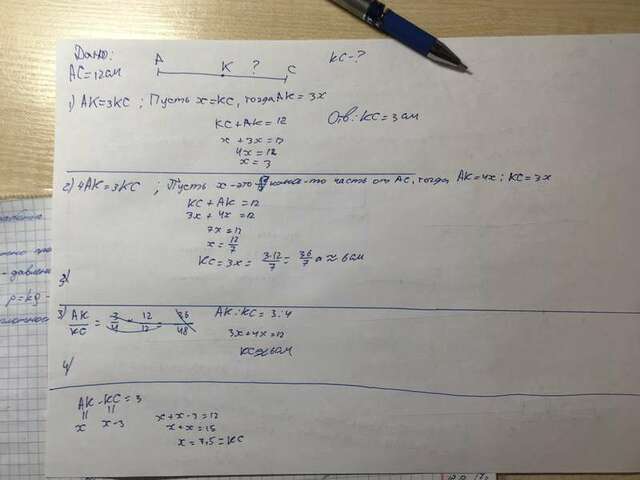 Дано:
AC=12см
A K ? C
KC-?
1) AK=3KC ; Пусть x=KC, тогда AK=3x
KC+AK=12
x+3x=12
4x=12
x=3
Отв: KC=3 см
2) 4AK=3KC ; Пусть x-это какая-то часть от AC, тогда AK=4x; KC=3x
KC+AK=12
3x+4x=12
7x=12
x=12/7
KC=3x= 3·12/7 = 36/7
3) AK/KC = 3/4
12
48
AK:KC=3:4
3x+4x=12
4)
AK-KC=3
x x-3
x+x-3=12
x+x=15
x=7,5=KC